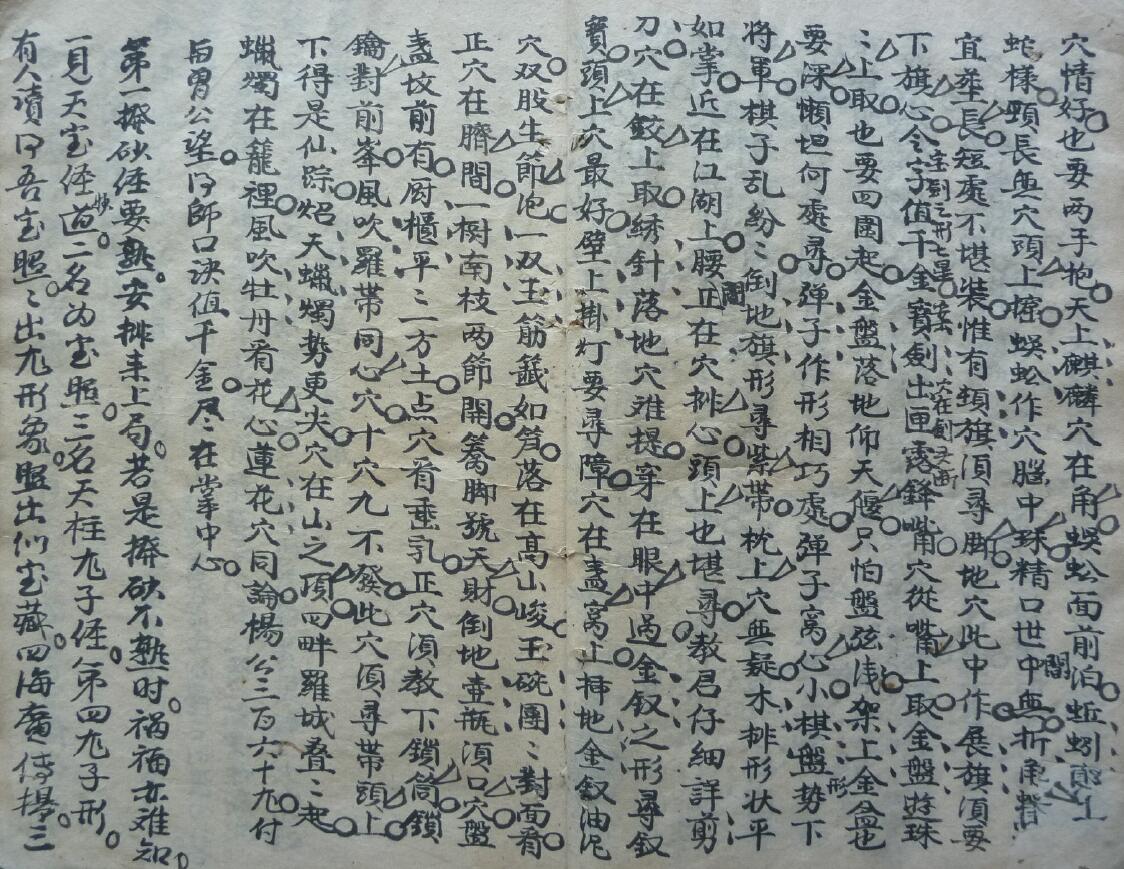 穴情好也要两手抱天上麒麟穴在角蜈蚣面前泊蚯蚓頭上
蛇樣頸長無穴頭上擒蜈蚣作穴腦中珠精口世中無折角
宜葬長短處不堪裝惟有頓旗須尋脚地穴此中作展旗須要
下旗心令字值千金寶劍出匣露鋒嘴穴從嘴上取金盤遊珠
宝劍之形七星
穴在劍
:上取也要四圍起金盤落地仰天偃只怕盤弦浅架上金盆也
要深懶坦何處尋彈子作形相巧處彈子窩心小棋盤勢下
形
将軍棋子乱紛:倒地旗形尋紫带枕上穴無疑木排形状平
如掌近在江湖上腰正在穴排心頭上也堪尋教君仔細詳剪
刀穴在鉸上取绣针落地穴难提穿在眼中過金釵之形尋釵
寶頭上穴最好壁上掛灯要尋障穴在盏窩上插地金釵油泥
穴双股生節泡一双玉筋籤如笋落在高山峻玉碗團:對面看
正穴在臍間一樹南枝两節開蓦脚號天財倒地壶瓶須口穴盤
盏坟前有厨櫃平:方土点穴看垂乳正穴須教下鎖筒鎖
鑰對前峯風吹羅带同心穴十穴九不發此穴須尋带頭上
下得是仙踪炤天蠟燭勢更尖穴在山之頂四畔羅城叠:起
蠟燭在籠裡風吹牡丹看花心蓮花穴同論楊公三百六十九付
與曾公望得師口决值千金尽在掌中心
第一撥砂侄要熟安排来上局若是撥砂不熟时祸福亦难知
一見天宝侄道二名为宝照三名天柱九子侄第四九子形
有人讀得吾宝照:出九形象照出似宝藏四海廣传揚三